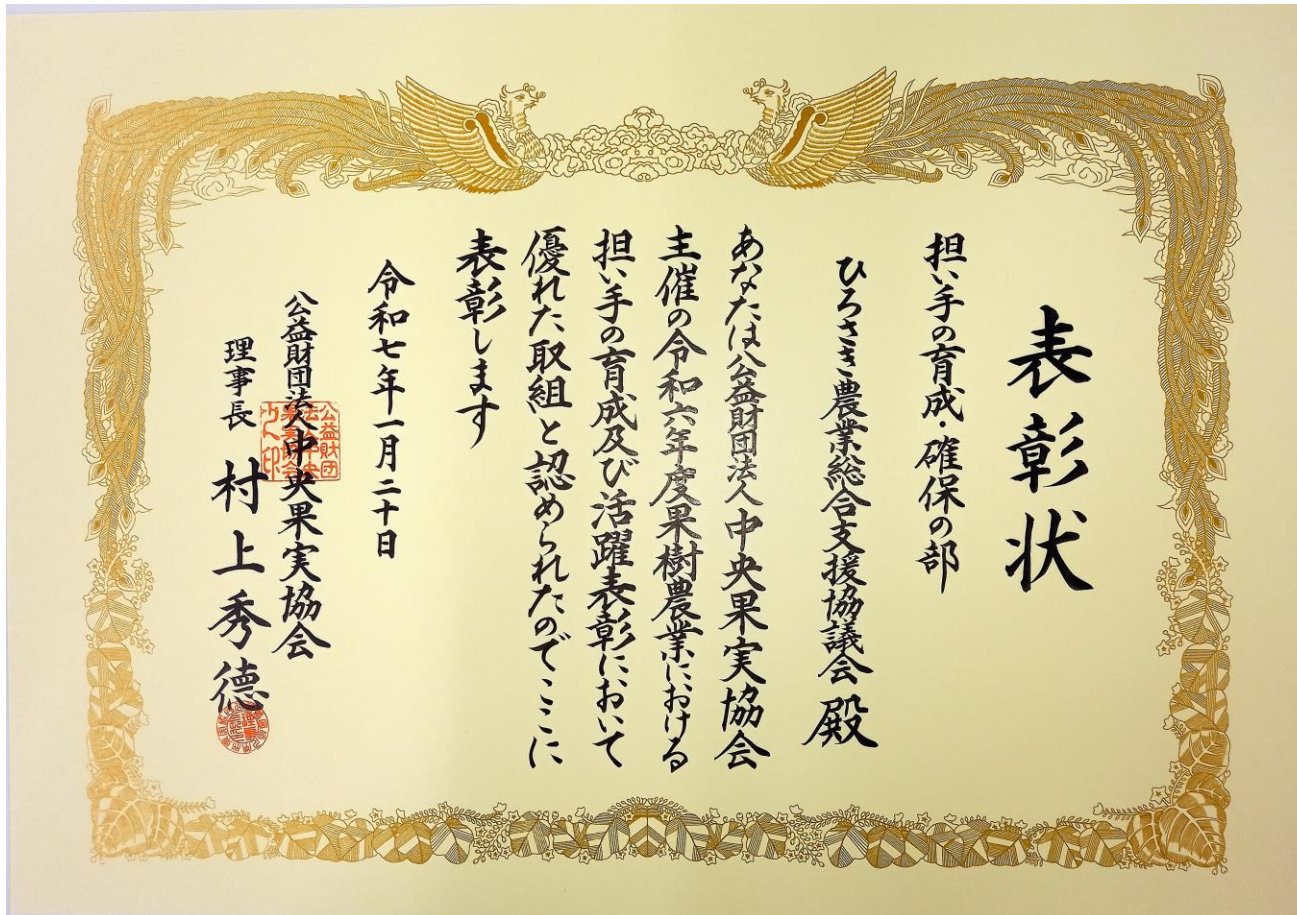 表彰状
担い手の育成・確保の部
ひろさき農業総合支援協議会 殿
あなたは公益財団法人中央果実協会
主催の令和六年度果樹農業における
担い手の育成及び活躍表彰において
優れた取組と認められたのでここに
表彰します
令和七年一月二十日
公益財団法人中央果実協会
理事長 村上秀徳